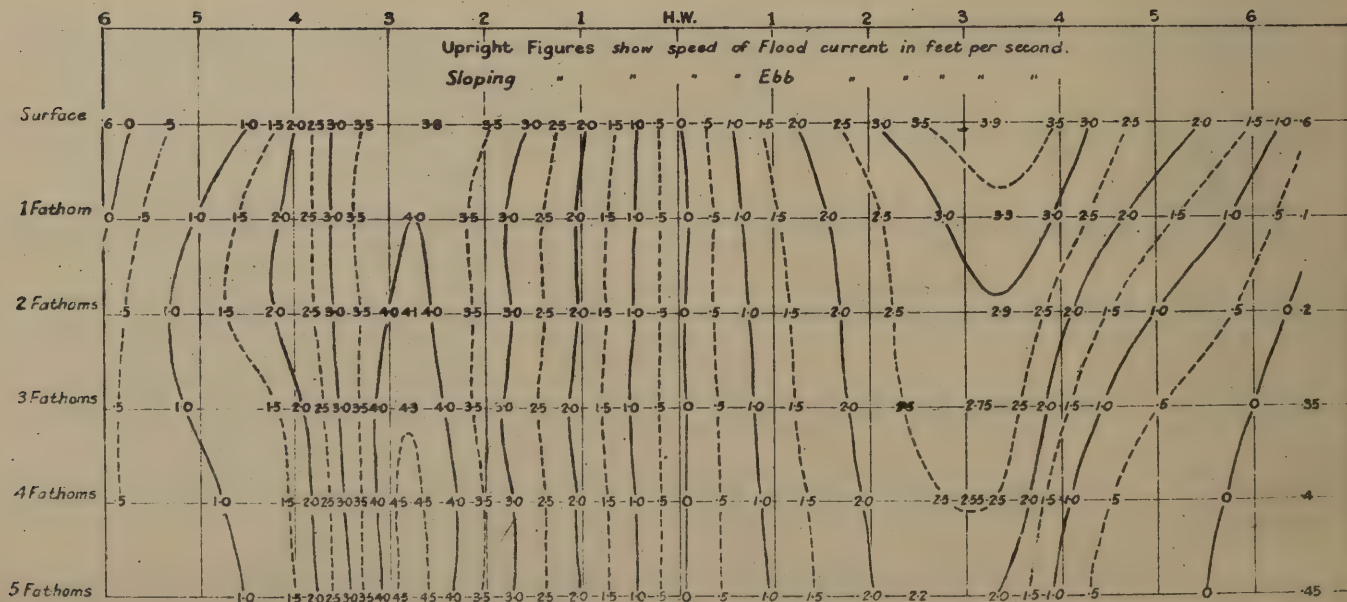 6 5 4 3 2 1 H.W. 1 2 3 4 5 6
Upright Figures show speed of Flood current in feet per second.
Sloping " " " " Ebb " " " " "
Surface ·6 0 ·5 1·0 1·5 2·0 2·5 3·0 3·5 3·8 3·5 3·0 2·5 2·0 1·5 1·0 ·5 0 ·5 1·0 1·5 2·0 2·5 3·0 3·5 3·9 3·5 3·0 2·5 2·0 1·5 1·0 ·6
1 Fathom 0 ·5 1·0 1·5 2·0 2·5 3·0 3·5 4·0 3·5 3·0 2·5 2·0 1·5 1·0 ·5 0 ·5 1·0 1·5 2·0 2·5 3·0 3·3 3·0 2·5 2·0 1·5 1·0 ·5 ·1
2 Fathoms ·5 1·0 1·5 2·0 2·5 3·0 3·5 4·0 4·1 4·0 3·5 3·0 2·5 2·0 1·5 1·0 ·5 0 ·5 1·0 1·5 2·0 2·5 2·9 2·5 2·0 1·5 1·0 ·5 0 ·2
3 Fathoms ·5 1·0 1·5 2·0 2·5 3·0 3·5 4·0 4·3 4·0 3·5 3·0 2·5 2·0 1·5 1·0 ·5 0 ·5 1·0 1·5 2·0 2·75 2·5 2·0 1·5 1·0 ·5 0 ·35
4 Fathoms ·5 1·0 1·5 2·0 2·5 3·0 3·5 4·0 4·5 4·5 4·0 3·5 3·0 2·5 2·0 1·5 1·0 ·5 0 ·5 1·0 1·5 2·0 2·5 2·55 2·5 2·0 1·5 1·0 ·5 0 ·4
5 Fathoms 1·0 1·5 2·0 2·5 3·0 3·5 4·0 4·5 4·5 4·0 3·5 3·0 2·5 2·0 1·5 1·0 ·5 0 ·5 1·0 1·5 2·0 2·2 2·0 1·5 1·0 ·5 0 ·45